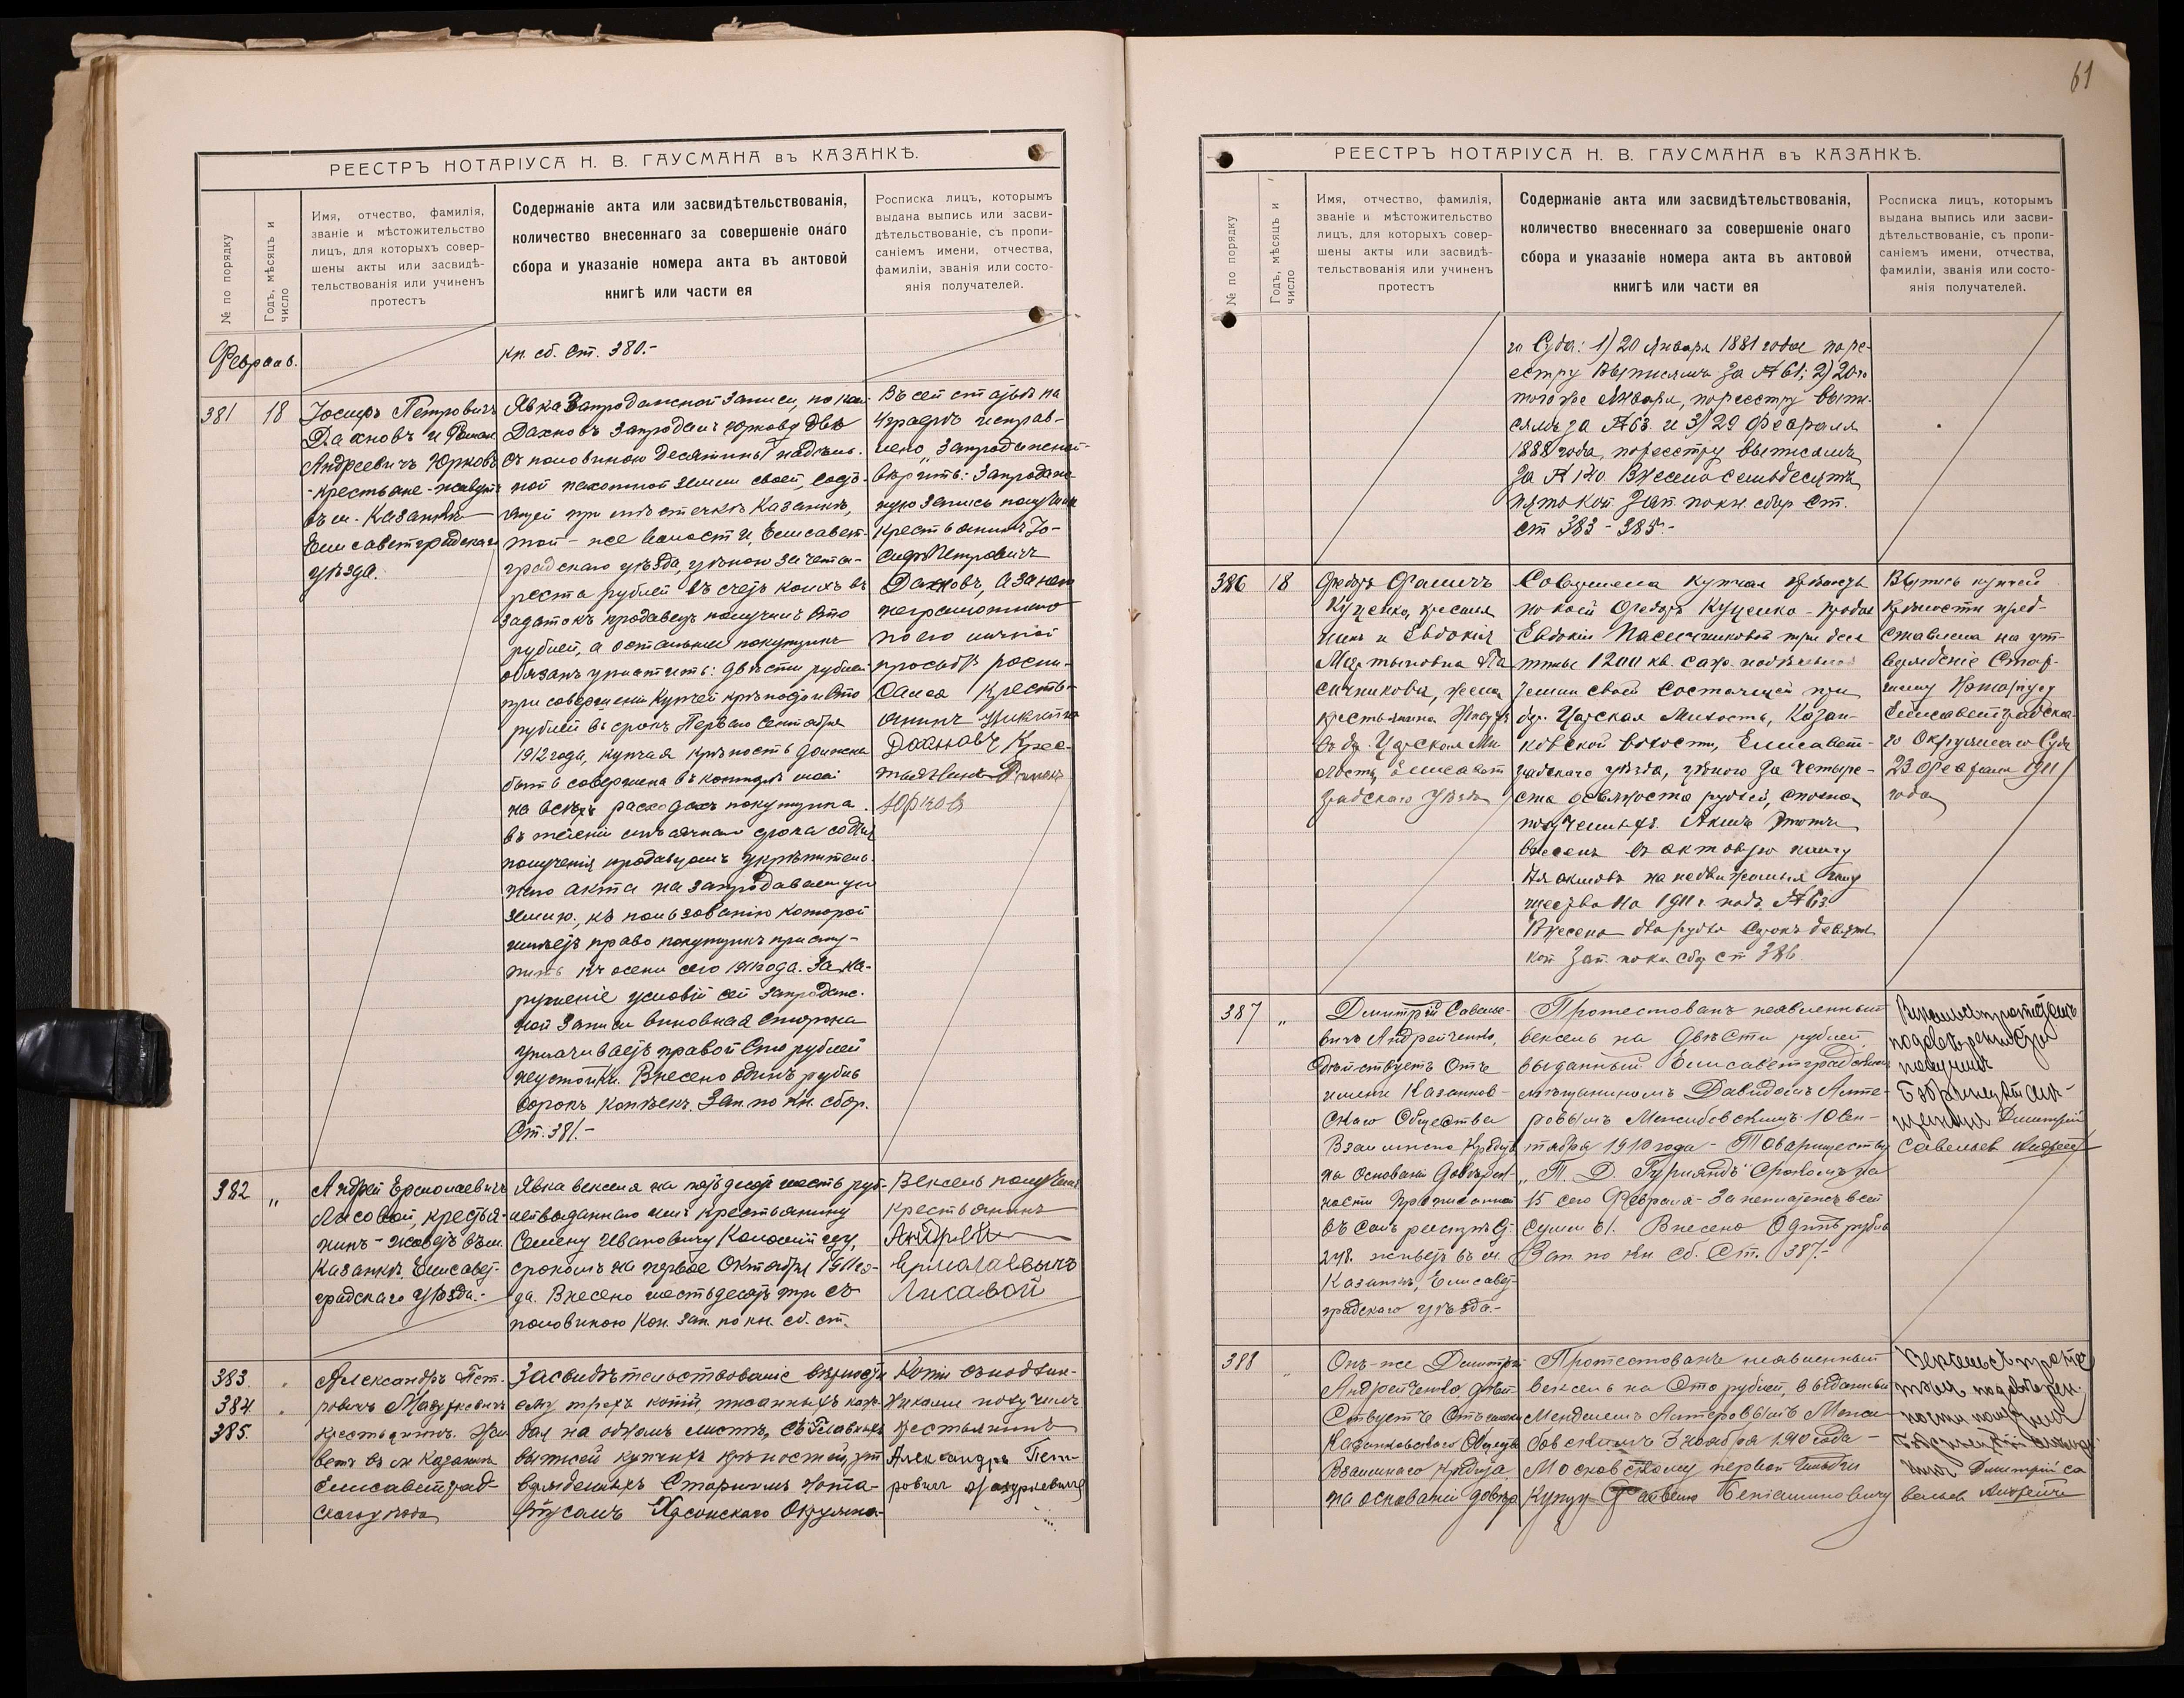 61
РЕЕСТРЪ НОТАРІУСА Н. В. ГАУСМАНА въ КАЗАНКѢ.
№ по порядку
Годъ, мѣсяцъ и
число
Имя, отчество, фамилія,
званіе и мѣстожительство
лицъ, для которыхъ совер-
шены акты или засвидѣ-
тельствованія или учиненъ
протестъ
Содержаніе акта или засвидѣтельствованія,
количество внесеннаго за совершеніе онаго
сбора и указаніе номера акта въ актовой
книгѣ или части ея
Росписка лицъ, которымъ
выдана выпись или засви-
дѣтельствованіе, съ пропи-
саніемъ имени, отчества,
фамиліи, званія или состо-
янія получателей.
Февраль.
кн. сб. ст. 380.-
381
18
Іосифъ Петровичъ
Дахновъ и Роман
Андреевичъ Юрковъ
-крестьяне-живутъ
въ м. Казанкѣ
Елисаветградскаго
уѣзда.
Явка Запродажной Записи, по коей
Дахновъ запродалъ Юркову двѣ
съ половиною десятины надѣль-
ной пахотной земли своей, состо-
ящей при мѣстечкѣ Казанкѣ,
той-же волости, Елисавет-
градскаго уѣзда, цѣною за четы-
реста рублей въ счетъ коихъ въ
задатокъ продавецъ получилъ сто
рублей, а остальные покупщикъ
обязанъ уплатить: двѣсти рублей
при совершеніи Купчей крѣпости и сто
рублей въ срокъ Перваго Сентября
1912 года, купчая крѣпость должна
быть совершена въ конторѣ моей
на всѣхъ расходахъ покупщика
въ теченіи мѣсячнаго срока со дня
полученія продавцомъ укрѣпитель-
наго акта на запродаваемую
землю, къ пользованію которой
имѣетъ право покупщикъ присту-
пить къ осени сего 1911 года. За на-
рушеніе условій сей запродаж-
ной записи виновная сторона
уплачиваетъ правой сто рублей
неустойки. Внесено одинъ рубль
сорокъ копѣекъ. Зап. по кн. сбор.
Ст. 381.-
Въ сей статьѣ на
4 графѣ исправ-
лено „Запродажной
вѣрить: Запродаж-
ную Запись получилъ
крестьянинъ Іо-
сифъ Петровичъ
Дахновъ, а за него
неграмотнаго
по его личной
просьбѣ роспи-
сался кресть-
янинъ Никита
Дахновъ Крес-
тьянинъ Роман
Юрков
382
„
Андрей Ермолаевичъ
Лисовой, крестья-
нинъ-живетъ въ м.
Казанкѣ, Елисавет-
градскаго уѣзда.-
Явка векселя на пятьдесятъ шесть руб-
лей выданнаго имъ крестьянину
Семену Ивановичу Коломійцу,
срокомъ на первое Октября 1911 го-
да. Внесено шестьдесятъ три съ
половиною коп. зап. по кн. сб. ст.
Вексель получилъ
крестьянинъ
Андрей
Ермалаевичъ
Лисавой
383
384
385.
Александръ Пет-
ровичъ Мазуркевичъ
крестьянинъ. Жи-
ветъ въ м. Казанкѣ
Елисаветград-
скаго уѣзда
Засвидѣтельствованіе вѣрности
ему трехъ копій, писанныхъ каж-
дая на одномъ листѣ, съ Главныхъ
выписей купчихъ крѣпостей, ут-
вержденныхъ Старшимъ Нота-
ріусомъ Херсонскаго Окружна-
Копіи съ подлин-
никами получилъ
крестьянинъ
Александръ Пет-
ровичъ Мазуркевичъ
РЕЕСТРЪ НОТАРІУСА Н. В. ГАУСМАНА въ КАЗАНКѢ.
№ по порядку
Годъ, мѣсяцъ и
число
Имя, отчество, фамилія,
званіе и мѣстожительство
лицъ, для которыхъ совер-
шены акты или засвидѣ-
тельствованія или учиненъ
протестъ
Содержаніе акта или засвидѣтельствованія,
количество внесеннаго за совершеніе онаго
сбора и указаніе номера акта въ актовой
книгѣ или части ея
Росписка лицъ, которымъ
выдана выпись или засви-
дѣтельствованіе, съ пропи-
саніемъ имени, отчества,
фамиліи, званія или состо-
янія получателей.
го Суда: 1) 20 Января 1881 года по ре-
естру выписямъ за № 61; 2) 20-го
того же Января, по реестру выпи-
сямъ за № 63 и 3) 29 Февраля
1888 года, по реестру выписямъ
за № 170. Внесено семьдесятъ
пять коп. Зап. по кн. сбор. ст.
ст 383-385.-
386
18
Федоръ Фомичъ
Куценко, крестья-
нинъ и Евдокія
Мартыновна Па-
сичникова, жена
крестьянина. Живутъ
въ дер. Царская Ми-
лость, Елисавет-
градскаго уѣзда
Совершена купчая крѣпость
по коей Федоръ Куценко-продалъ
Евдокіи Пасичниковой три деся-
тины 1200 кв. саж. надѣльной
земли своей состоящей при
дер. Царская Милость, Казан-
ковской волости, Елисавет-
градскаго уѣзда, цѣною за четыре-
ста девяносто рублей, сполна
полученныхъ. Актъ этотъ
внесенъ въ актовую книгу
для актовъ на недвижимыя иму-
щества на 1911 г. подъ № 63
Внесено два рубля сорокъ девять
коп. Зап. по кн. сбор ст 386
Выпись купчей
крѣпости пред-
ставлена на ут-
вержденіе Стар-
шему Нотаріусу
Елисаветградска-
го Окружнаго Суда
23 Февраля 1911
года
387
„
Дмитрій Савелье-
вичъ Андрейченко,
дѣйствуетъ отъ
имени Казанков-
скаго Общества
Взаимнаго Кредита
на основаніи довѣрен-
ности прописанной
въ семъ реестрѣ ст.
248. живетъ въ м.
Казанкѣ, Елисавет-
градскаго уѣзда.-
Протестованъ неявленный
вексель на двѣсти рублей,
выданный Елисаветградскимъ
мѣщаниномъ Давидомъ Алте-
ровымъ Межибовскимъ 10 Сен-
тября 1910 года-Товариществу
„Т. Д. Гурляндъ" срокомъ на
15 сего Февраля-за неплатежъ всей
суммы. Внесено одинъ рубль
Зап. по кн. сб. Ст. 387.-
Вексель съ протестомъ
по довѣренности
получилъ
Бобринецкій мѣ-
щанинъ Дмитрій
Савельев Андрейч
388
„
Онъ-же Дмитрій
Андрейченко, дѣй-
ствуетъ отъ имени
Казанковскаго Общества
Взаимнаго Кредита
на основаніи довѣр
Протестованъ неявленный
вексель на сто рублей, выданный
Менделемъ Алтеровымъ Межи-
бовскимъ 3 ноября 1910 года-
Московскому первой гильдіи
Купцу Файвелю Беніаминовичу
Вексель съ протес-
томъ по довѣрен-
ности получилъ
Бобринецкій мѣща-
нинъ Дмитрій Са
вельев Андрейч